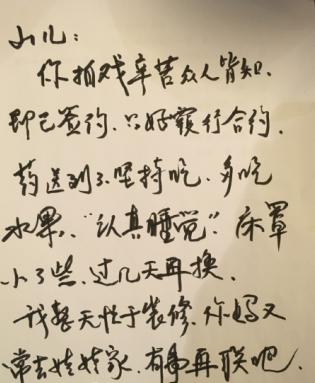 山儿：
你拍戏辛苦众人皆知.
即已签约.只好履行合约.
药送到了.坚持吃.多吃
水果,."认真睡觉".床罩
小了些.过几天再换.
我整天忙于装修.你妈又
常去娃娃家.有事再联吧.